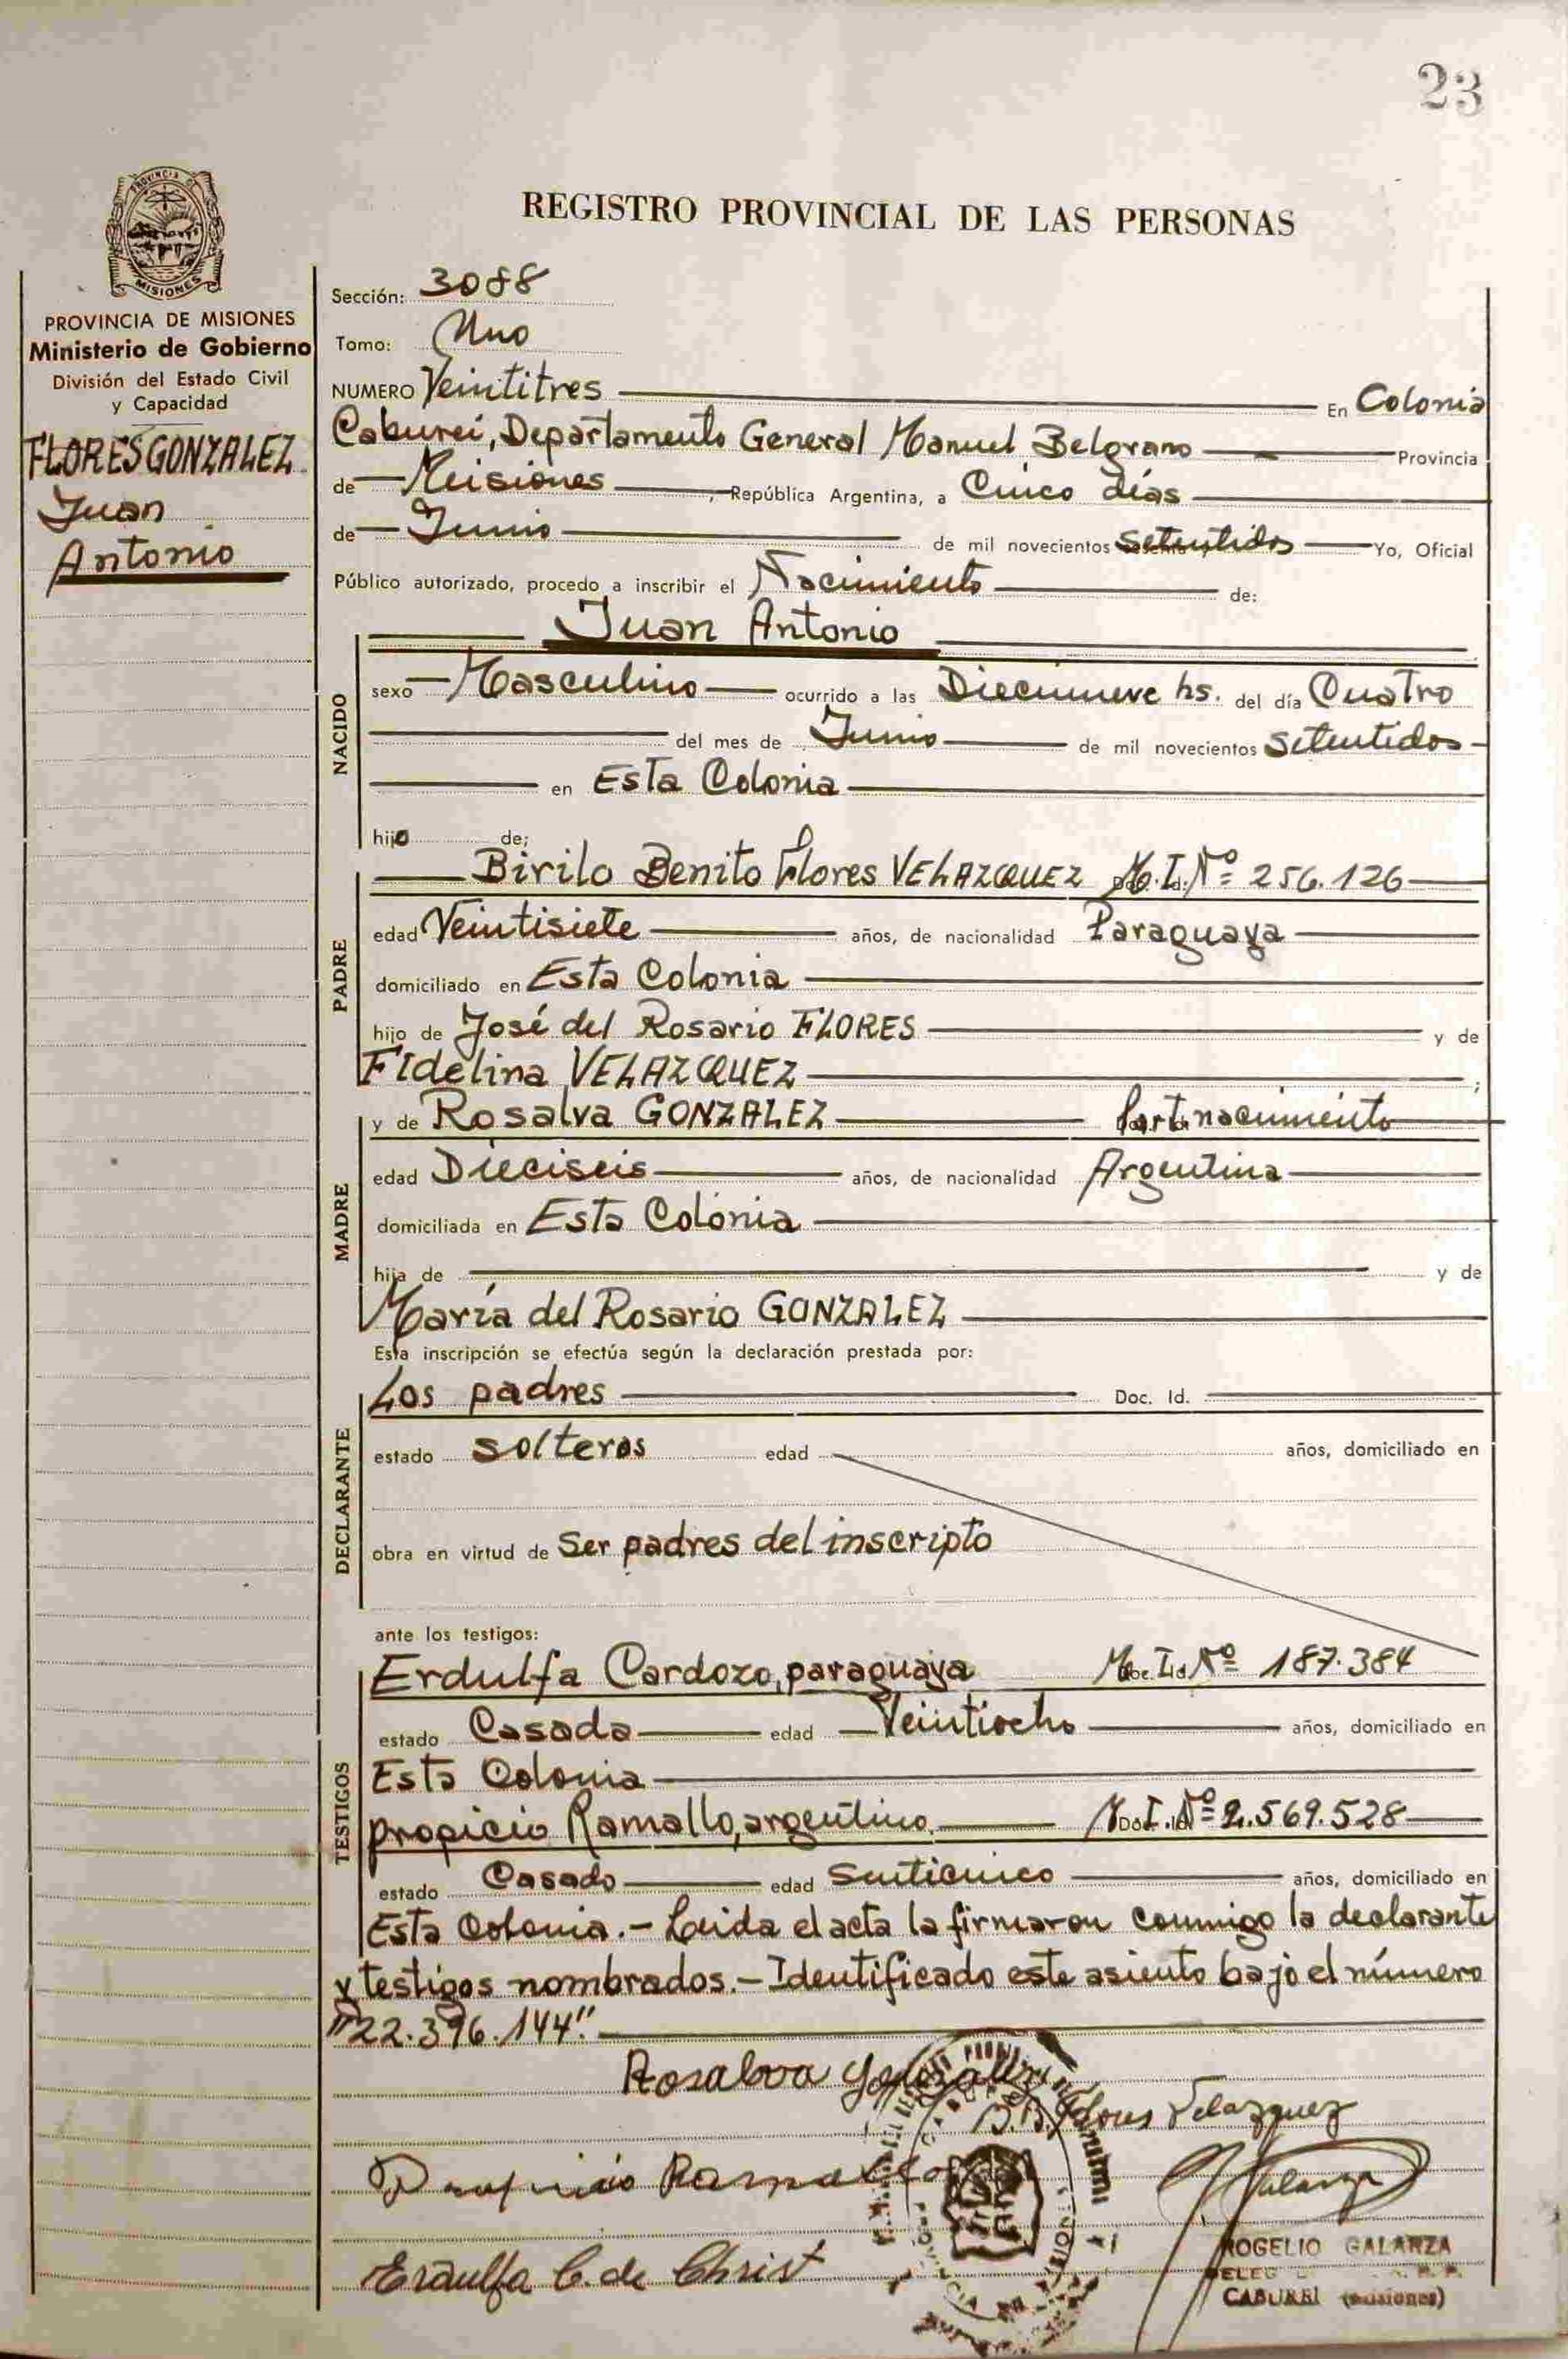 23
PROVINCIA DE
MISIONES
REGISTRO PROVINCIAL DE LAS PERSONAS
PROVINCIA DE MISIONES
Ministerio de Gobierno
División del Estado Civil
y Capacidad
FLORES GONZALEZ
Juan
Antonio
Sección: 3088
Tomo: Uno
NUMERO Veintitres En Colonia
Caburei, Departamento General Manuel Belgrano Provincia
de Misiones, República Argentina, a Cinco días
de Junio de mil novecientos setentidos Yo, Oficial
Público autorizado, procedo a inscribir el Nacimiento de:
NACIDO
Juan Antonio
sexo Masculino ocurrido a las Diecinueve hs. del día Cuatro
del mes de Junio de mil novecientos setentidos
en Esta Colonia
hijo de;
PADRE
Birilo Benito Flores VELAZQUEZ M.I.Nº 256.126
edad Veintisiete años, de nacionalidad Paraguaya
domiciliado en Esta Colonia
hijo de José del Rosario FLORES y de
Fidelina VELAZQUEZ;
MADRE
y de Rosalva GONZALEZ Part. nacimiento
edad Dieciseis años, de nacionalidad Argentina
domiciliada en Esta Colonia
hija de y de
María del Rosario GONZALEZ
Esta inscripción se efectúa según la declaración prestada por:
DECLARANTE
Los padres Doc. Id.
estado solteros edad años, domiciliado en
obra en virtud de Ser padres del inscripto
ante los testigos:
TESTIGOS
Erdulfa Cardozo, paraguaya M.I.Nº 187.384
estado Casada edad Veintiocho años, domiciliado en
Esta Colonia
propicio Ramallo, argentino. M.I.Nº 2.569.528
estado Casado edad años, domiciliado en
Esta Colonia.- Leida el acta la firmaron conmigo la declarante
y testigos nombrados.- Identificado este asiento bajo el número
"22.396.144".
Rosalva Gonzalez
B.B. Flores Velazquez
Propicio Ramallo
Galarza
Erdulfa C. de Christ
ROGELIO GALARZA
CABUREI (Misiones)